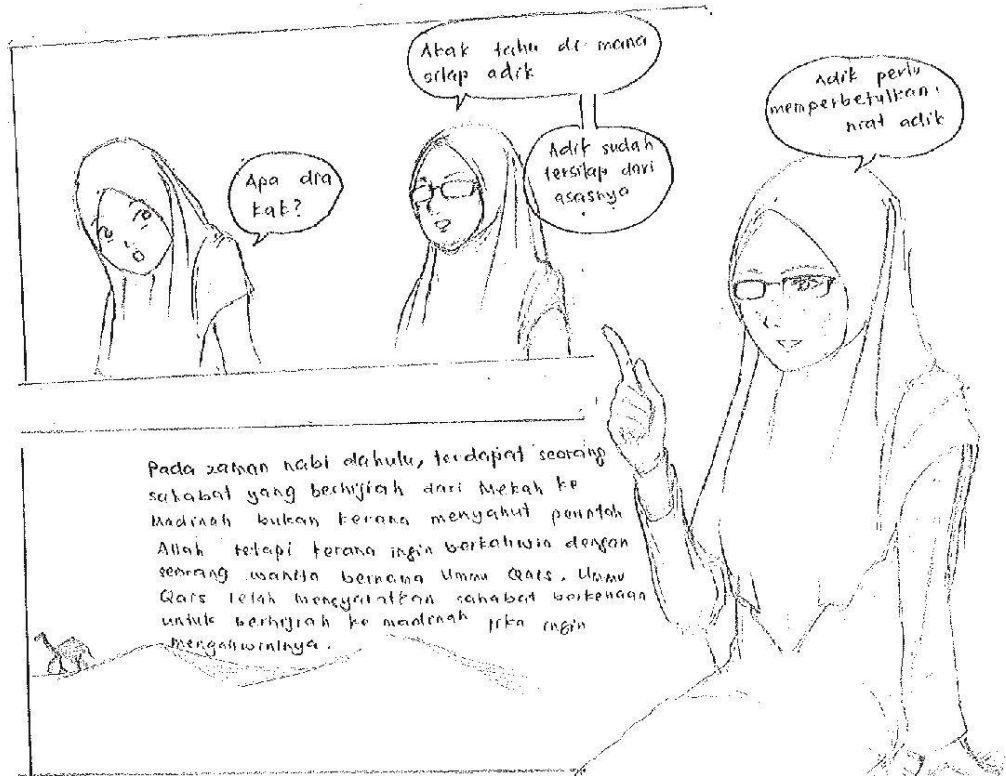 Akak tahu di mana
silap adik
Adik sudah
tersilap dari
asasnya
Apa dia
kak?
Adik perlu
memperbetulkan
niat adik
Pada zaman nabi dahulu, terdapat seorang
sahabat yang berhijrah dari Mekah ke
Madinah bukan kerana menyahut perintah
Allah tetapi kerana ingin berkahwin dengan
seorang wanita bernama Ummu Qais. Ummu
Qais telah mensyaratkan sahabat berkenaan
untuk berhijrah ke madinah jika ingin
mengahwininya.